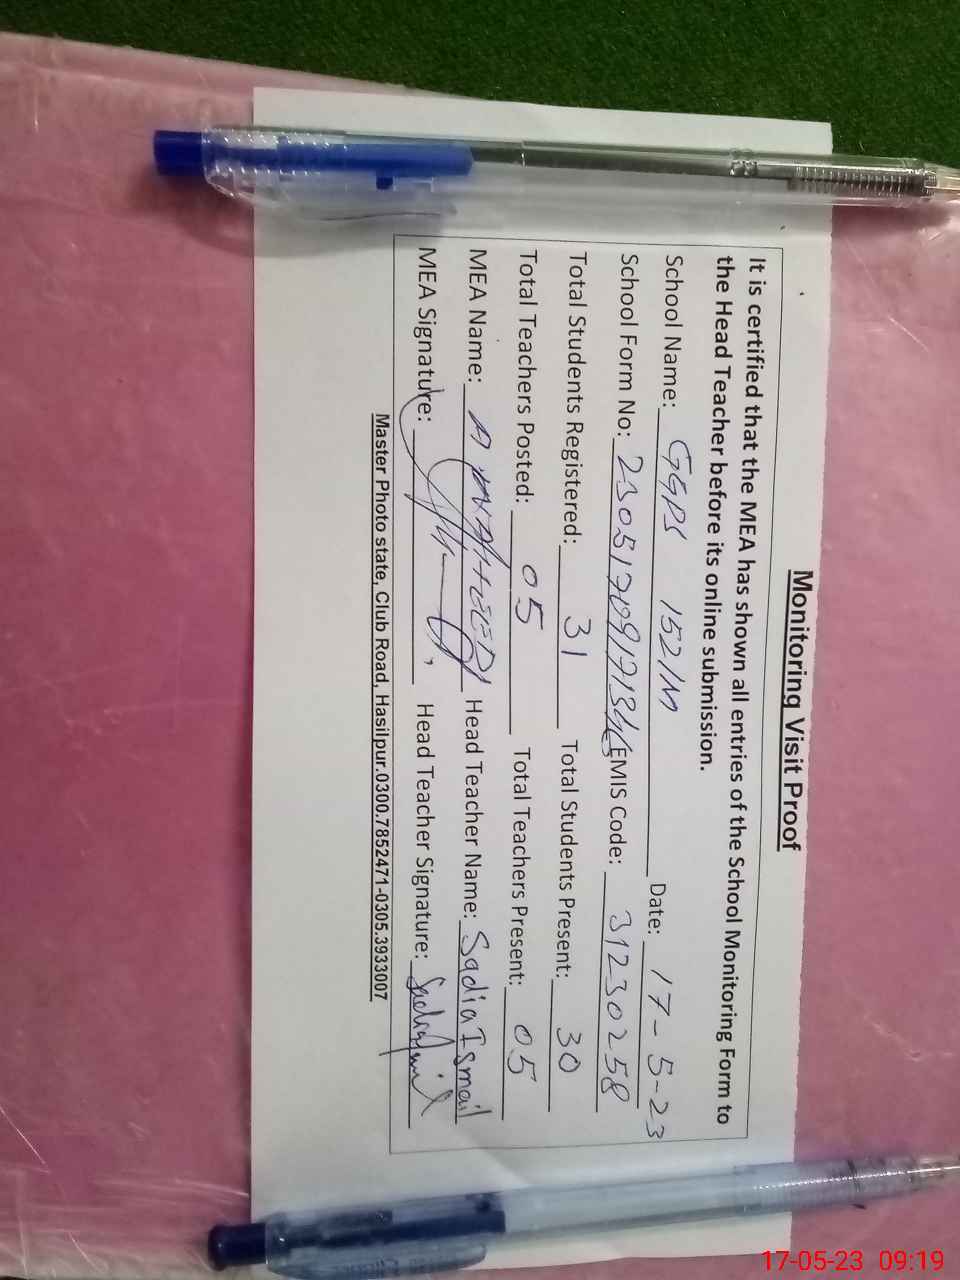 Monitoring Visit Proof
It is certified that the MEA has shown all entries of the School Monitoring Form to
the Head Teacher before its online submission.
School Name: GGPS 152/M Date: 17-5-23
School Form No: EMIS Code: 31230258
Total Students Registered: 31 Total Students Present: 30
Total Teachers Posted: 05 Total Teachers Present: 05
MEA Name: Head Teacher Name: Sadia Ismail
MEA Signature: Head Teacher Signature:
Master Photo state, Club Road, Hasilpur.0300.7852471-0305.3933007
17-05-23 09:19